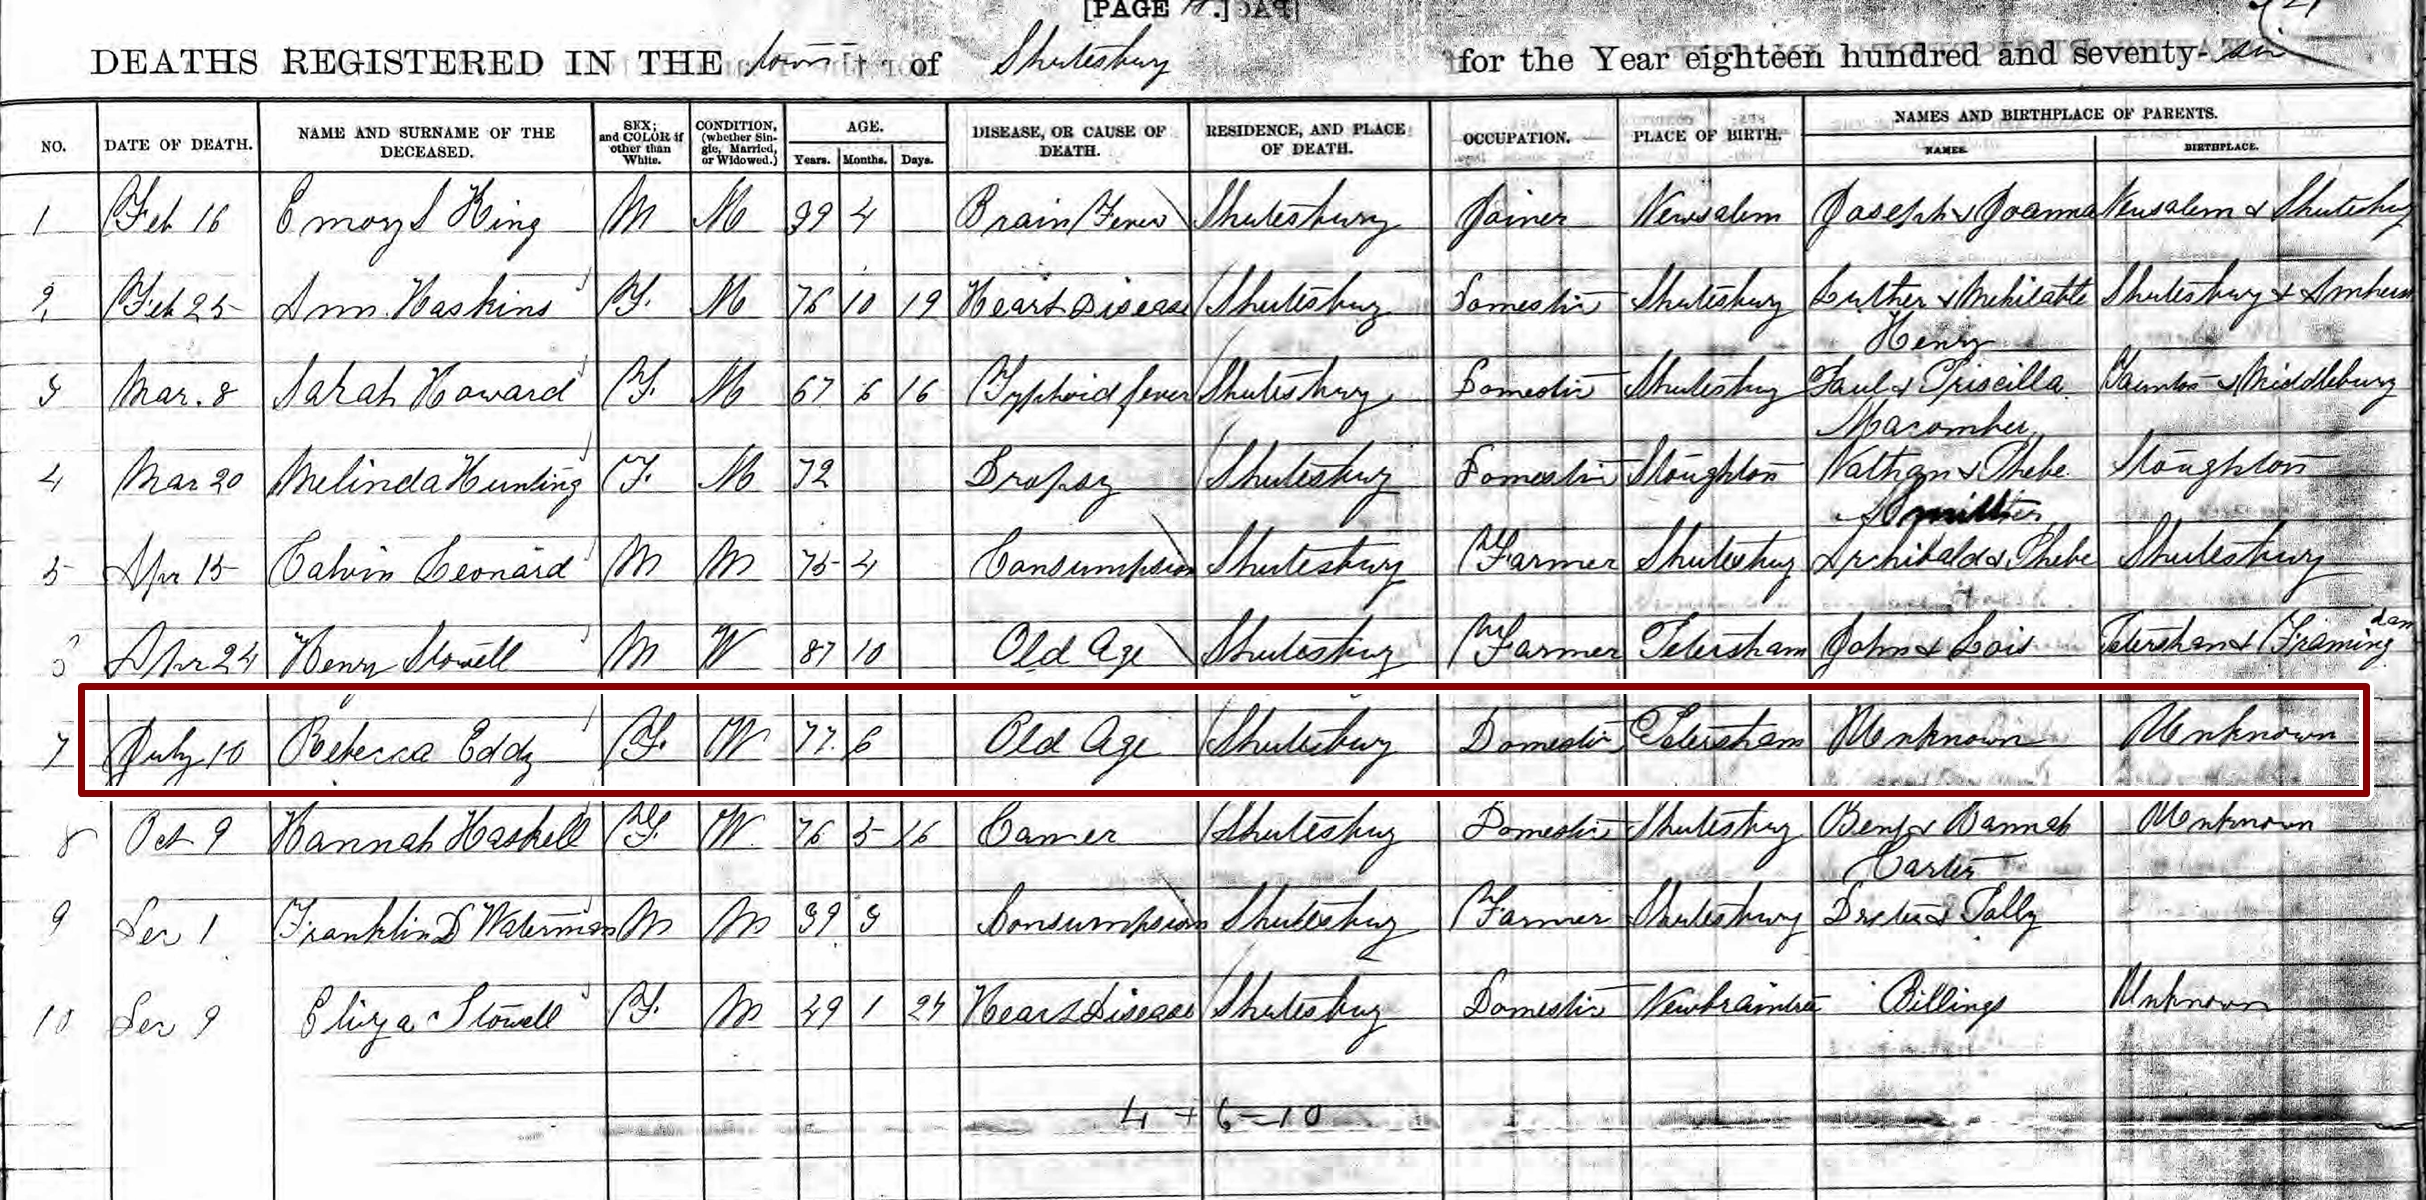 [PAGE
DEATHS REGISTERED IN THE town of Shutesbury for the Year eighteen hundred and seventy-six
NO. DATE OF DEATH. NAME AND SURNAME OF THE DECEASED. SEX; and COLOR if other than White. CONDITION, (whether Single, Married, or Widowed.) AGE. Years. Months. Days. DISEASE, OR CAUSE OF DEATH. RESIDENCE, AND PLACE OF DEATH. OCCUPATION. PLACE OF BIRTH. NAMES AND BIRTHPLACE OF PARENTS. NAMES. BIRTHPLACE.
1 Feb 16 Emory S King M M 39 4 Brain Fever Shutesbury Joiner Newsalem Joseph & Joanna Newsalem & Shutesbury
2 Feb 25 Ann Haskins F. M 76 10 19 Heart Disease Shutesbury Domestic Shutesbury Luther & Mehitable Shutesbury & Amherst
Henry
3 Mar. 8 Sarah Howard F. M 67 6 16 Typhoid fever Shutesbury Domestic Shutesbury Paul & Priscilla Taunton & Middlebury
Macomber
4 Mar 20 Melinda Hunting F. M 72 Dropsy Shutesbury Domestic Stoughton Nathan & Phebe Stoughton
5 Apr 15 Calvin Leonard M M 75 4 Consumpsion Shutesbury Farmer Shutesbury Archibald & Phebe Shutesbury
Apr 24 Henry Stowell M W 87 10 Old Age Shutesbury Farmer Petersham John & Lois Petersham & Framing
7 July 10 Rebecca Eddy F. W 77. 6 Old Age Shutesbury Domestic Petersham Unknown Unknown
8 Oct 9 Hannah Haskell F. W. 76 5 16 Cancer Shutesbury Domestic Shutesbury Benj & Hannah Unknown
Carter
9 Dec 1 Franklin D Waterman M M 39 3 Consumpsion Shutesbury Farmer Shutesbury
10 Dec 9 Eliza Stowell F. M 49 1 24 Heart Disease Shutesbury Domestic Newbraintree Billings Unknown
4 + 6 = 10